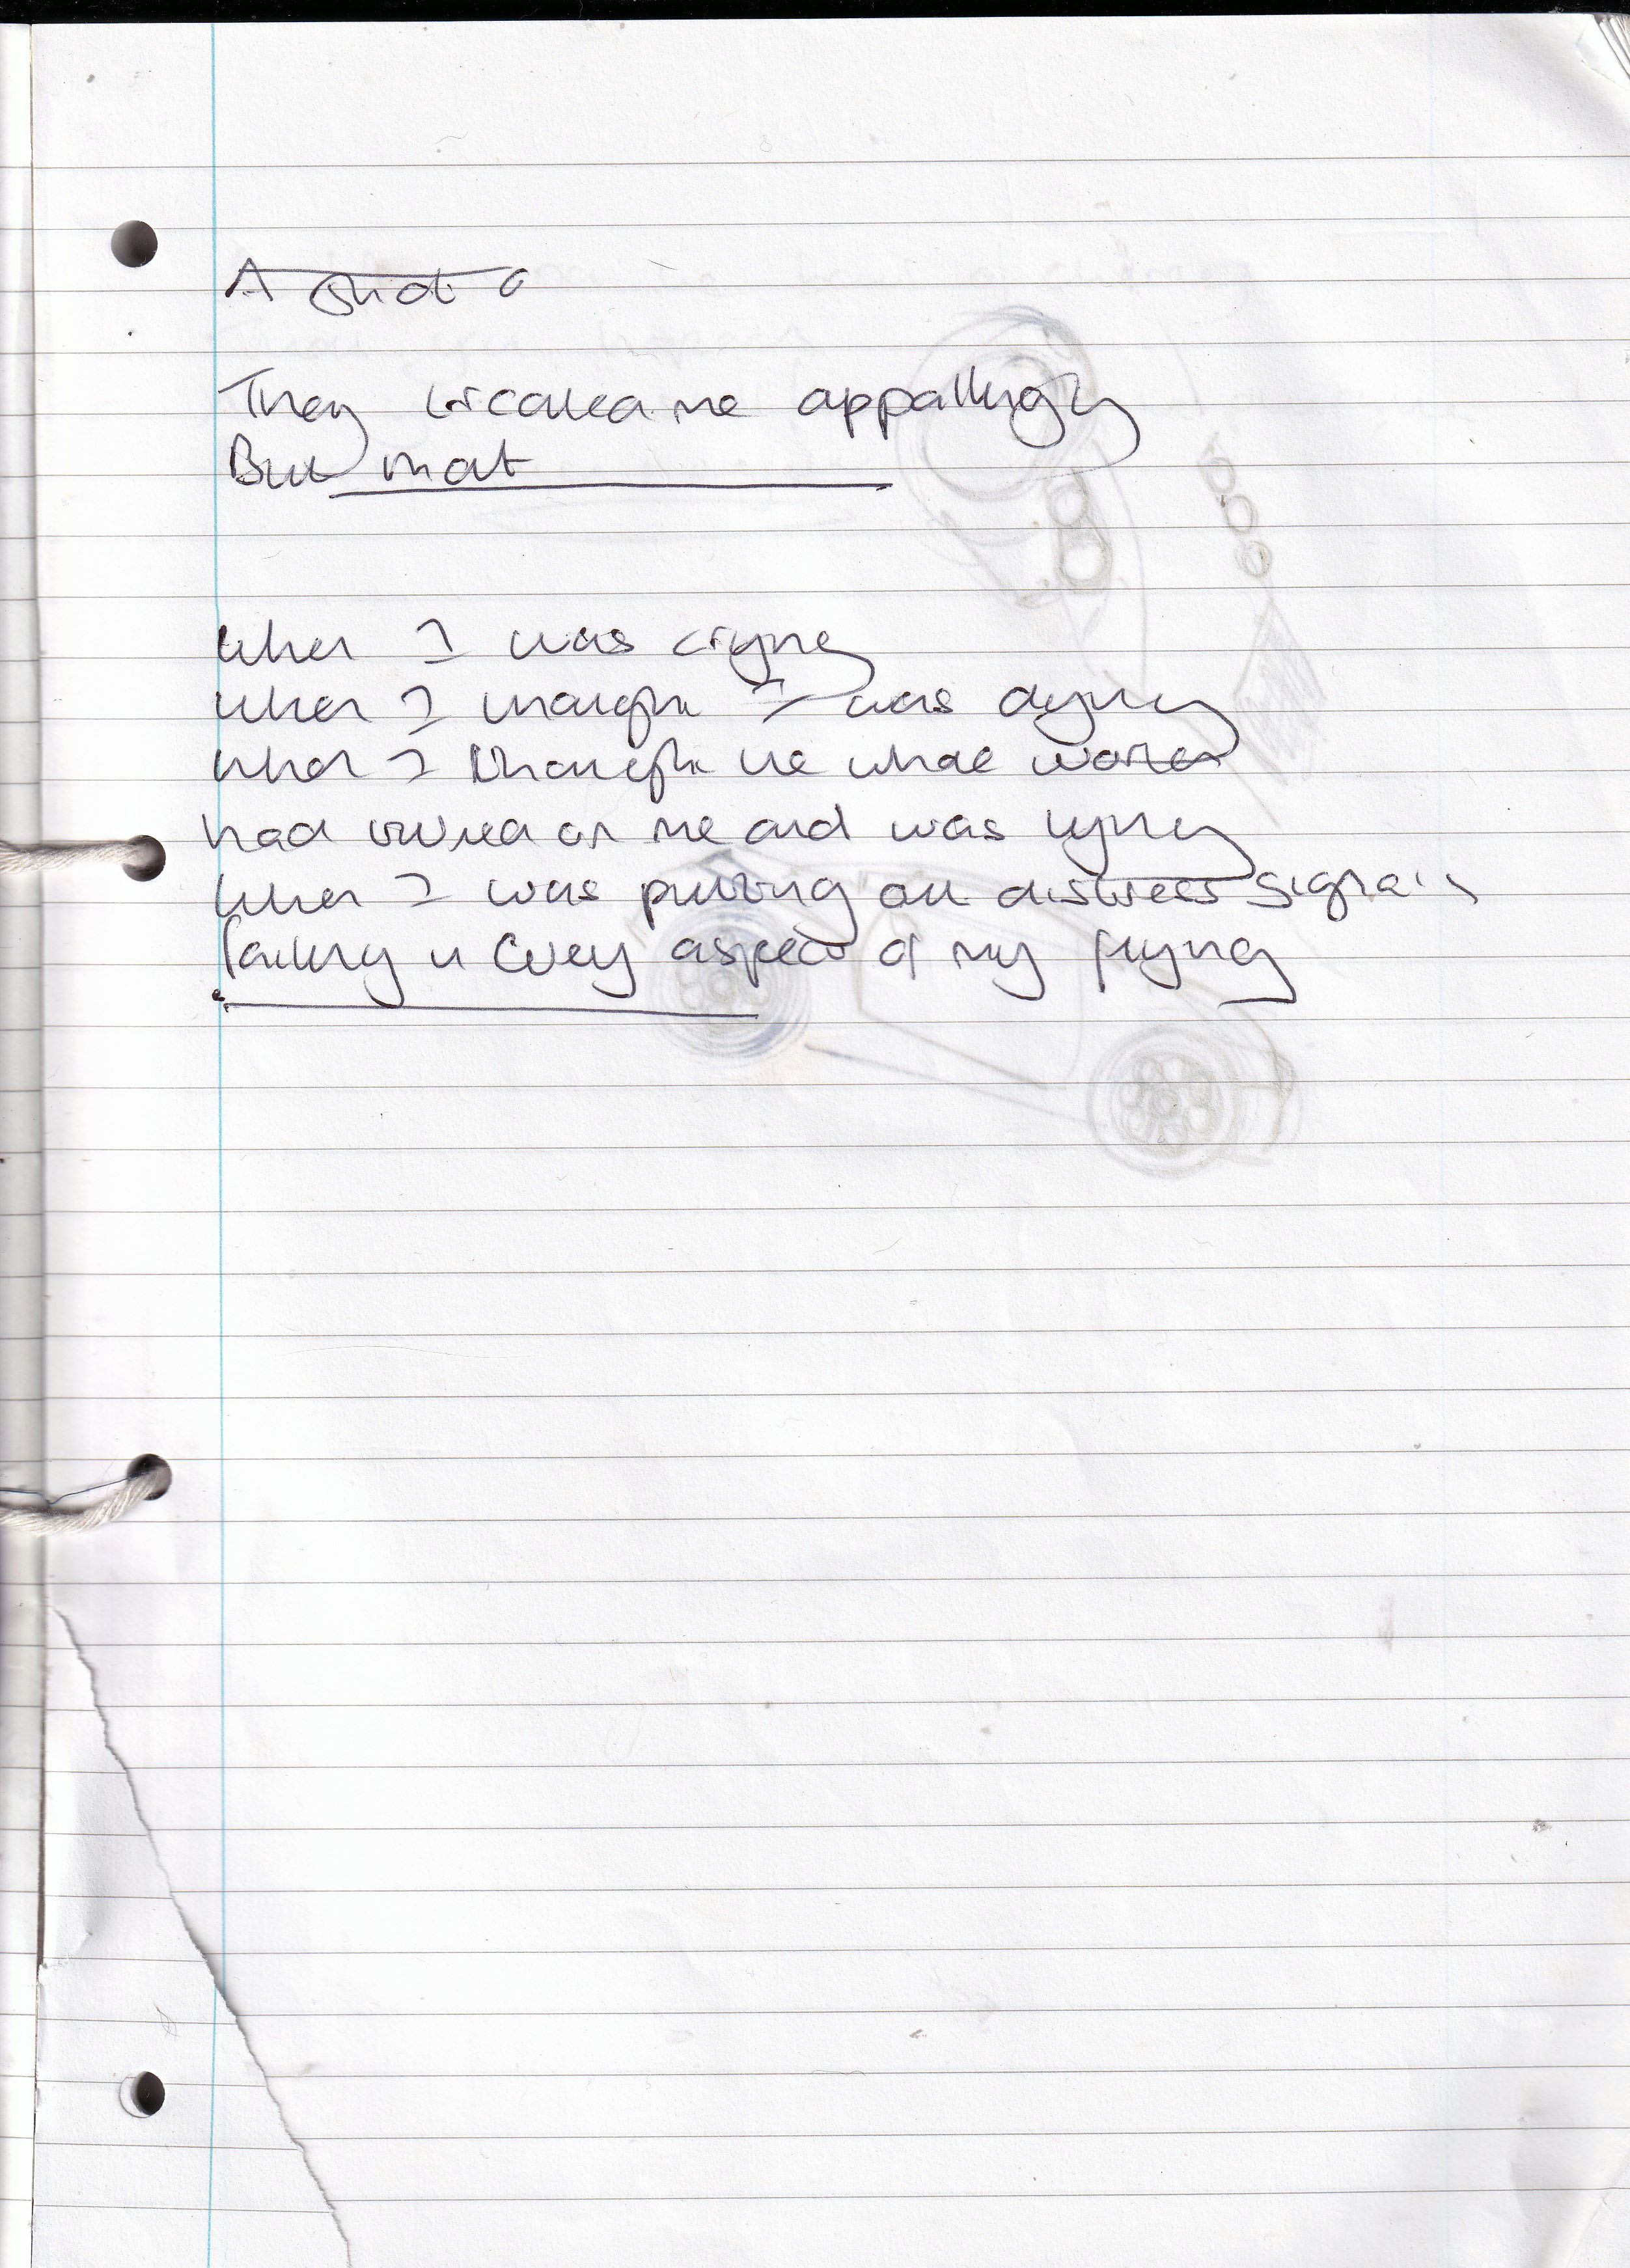 A
They treated me appallingly
But that
when I was crying
when I thought I was dying
when I thought the whole world
had turned on me and was lying
when I was putting out distress signals
failing in every aspect of my flying